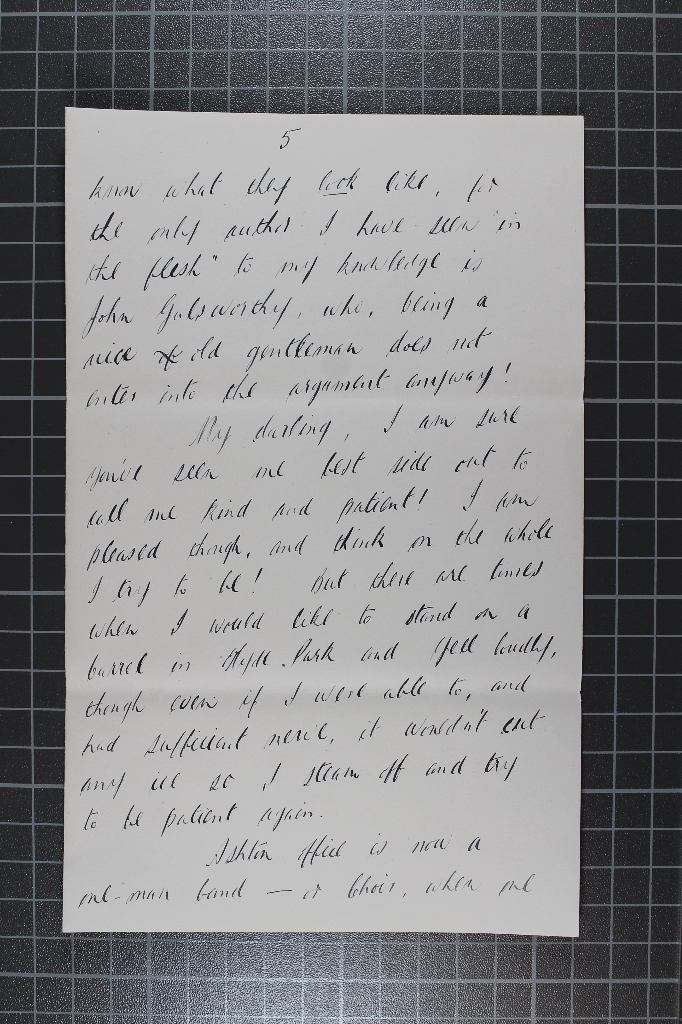 5
know what they look like, for
the only author I have seen "in
the flesh" to my knowledge is
John Galsworthy, who, being a
nice old gentleman does not
enter into the argument anyway!
My darling, I am sure
you've seen me best side out to
call me kind and patient! I am
pleased though, and think on the whole
I try to be! But there are times
when I would like to stand on a
barrel in Hyde Park and yell loudly,
though even if I were able to, and
had sufficient nerve, it wouldn't cut
any ice so I steam off and try
to be patient again.
Ashton office is now a
one-man band — or choir, when one